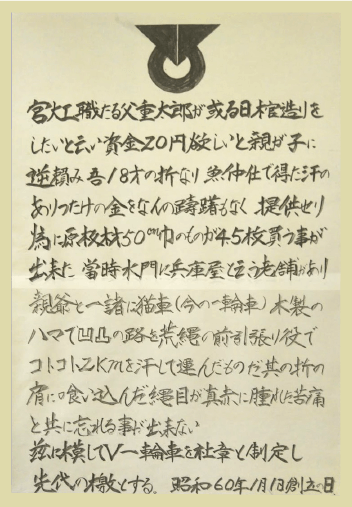 宮大工職たる父重太郎が或る日棺造りを
したいと云い資金20円欲しいと親が子に
逆頼み吾18才の折なり魚仲仕で得た汗の
ありったけの金をなんの躊躇もなく提供せり
為に原板材50cm巾のものが45枚買う事が
出来た 當時水門に兵庫屋と云う老舗があり
親爺と一諸に猫車(今の一輪車)木製の
ハマで凹凸の路を荒縄の前引張り役で
コトコト2Kmを汗して運んだものだ其の折の
肩に喰い込んだ縄目が真赤に腫れた苦痛
と共に忘れる事が出来ない
茲に模してV一輪車を社章と制定し
先代の檄とする。昭和60年1月1日創立の日